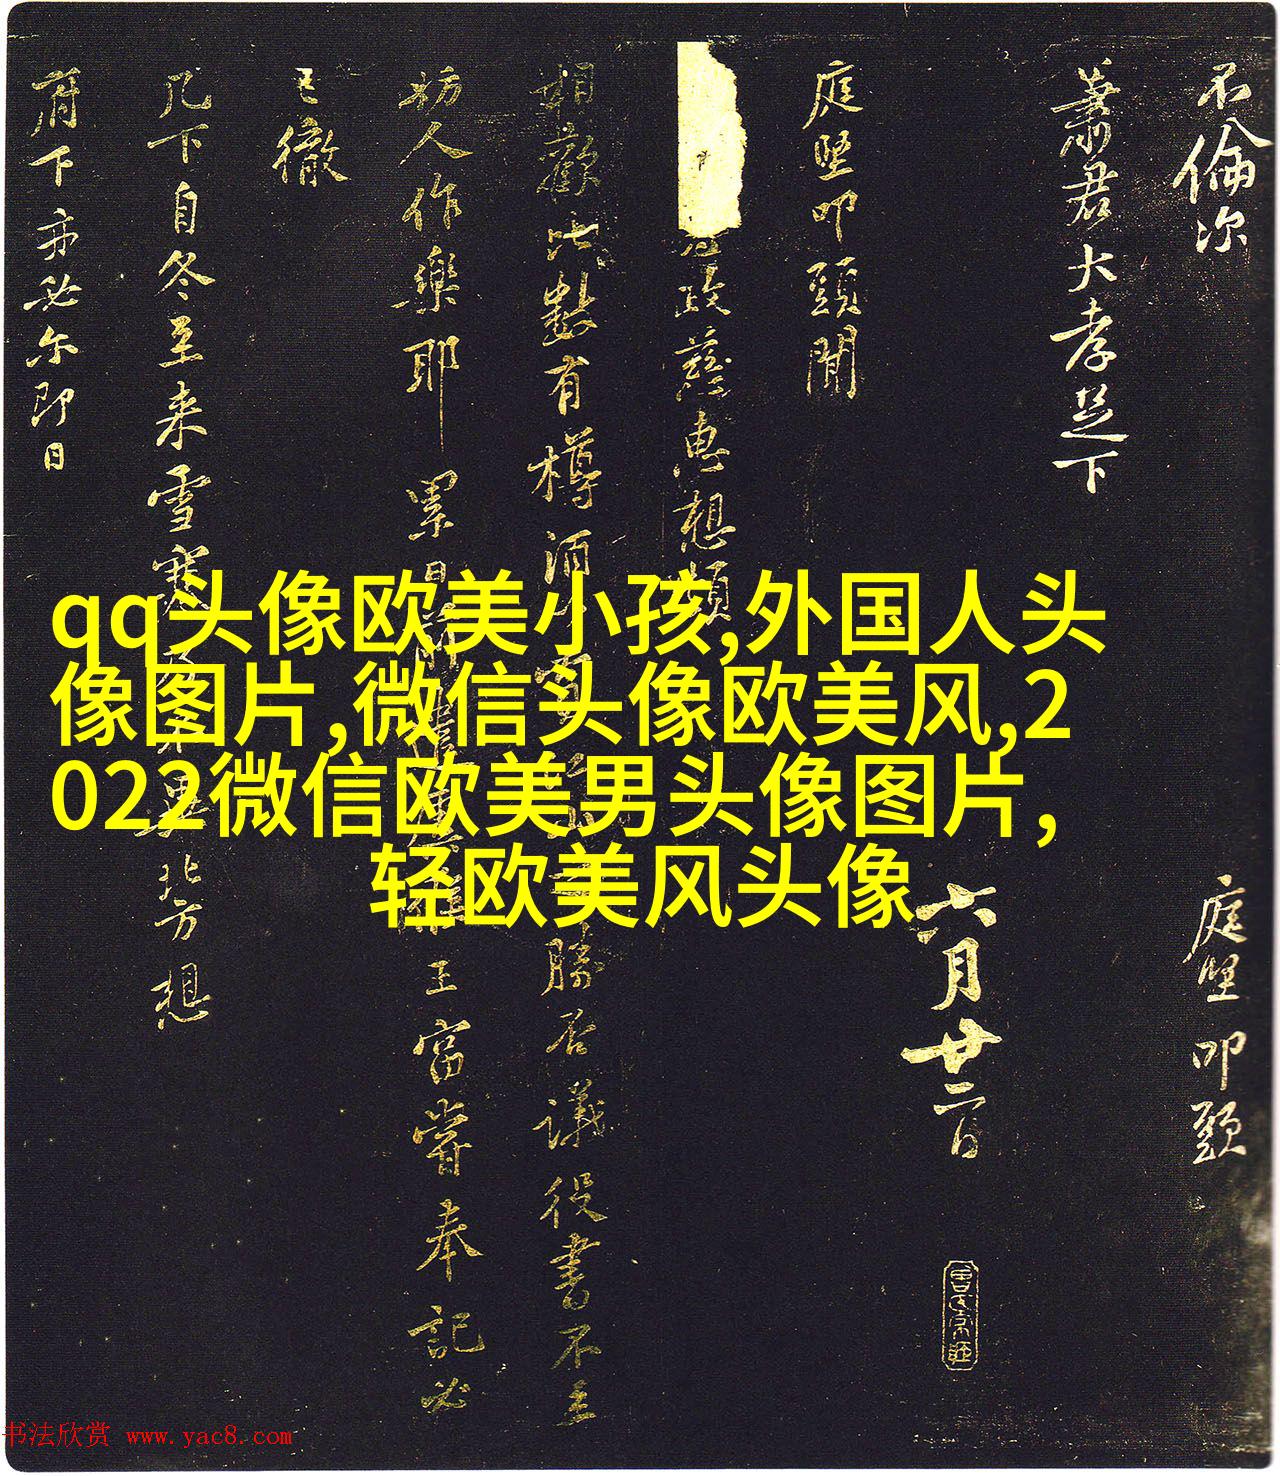 不倫次
庭堅叩頭
蕭君大孝足下
六月廿二日
庭堅叩頭聞
政慈惠想
相歡比數有樽酒
勝否議役書不至
妨人作樂耶累日
王富嘗奉記必
已徹
几下自冬至來雪寒
北方想
府下亦必尔即日
qq头像欧美小孩,外国人头
像图片,微信头像欧美风,2
022微信欧美男头像图片,
轻欧美风头像
书法欣赏 www.yac8.com